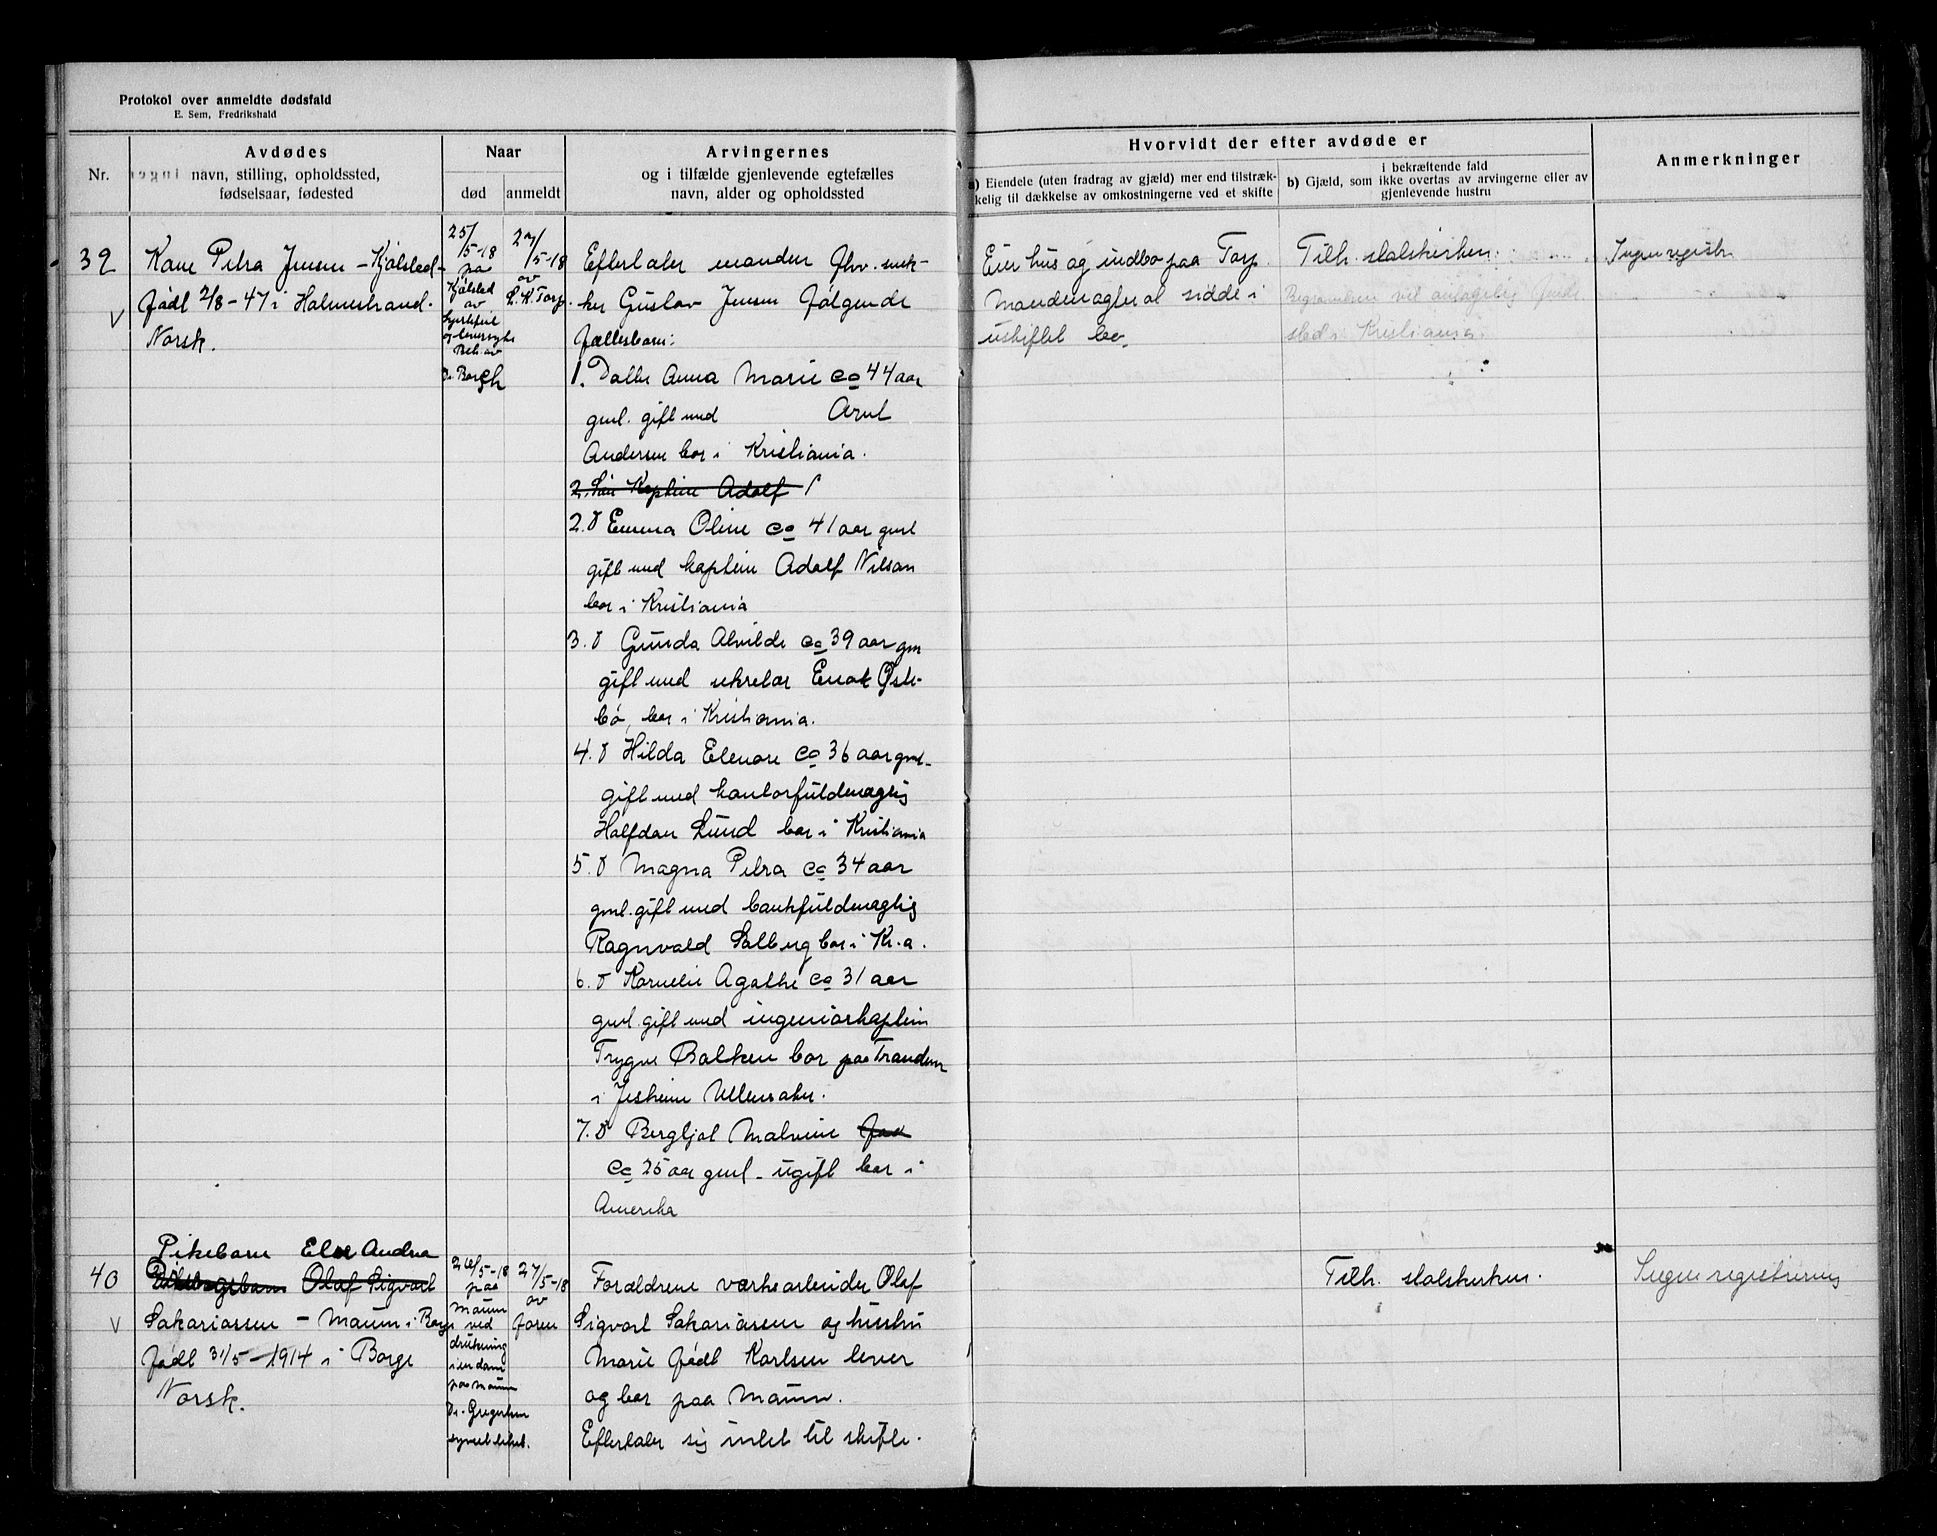 Protokol over anmeldte dødsfald
E. Sem, Fredrikshald
Nr.
Avdødes
navn, stilling, opholdssted,
fødselsaar, fødested
Naar
død
anmeldt
Arvingernes
og i tilfælde gjenlevende egtefælles
navn, alder og opholdssted
Hvorvidt der efter avdøde er
a) Eiendele (uten fradrag av gjæld) mer end tilstræk-
kelig til dækkelse av omkostningerne ved et skifte
i bekræftende fald
b) Gjæld, som ikke overtas av arvingerne eller av
gjenlevende hustru
Anmerkninger
39
Kone Petra Jensen - Kjølstad -
født 2/8-47 i Holmestrand.
Norsk.
25/
5-18
paa
Kjølstad
av
hjertefeil
Beh. av
Dr. Borgh
27/
5-18
av
L. K. Torp.
Efterlater manden Ghv. snek-
ker Gustav Jensen følgende
fællesbarn:
1. Datter Anna Marie ca 44 aar
gml. gift med Arnt
Andersen bor i Kristiania.
2. Søn Kaptein Adolf
2. d Emma Oline ca 41 aar gml
gift med kaptein Adolf Nilsen
bor i Kristiania
3. d Gunda Alvilde ca 39 aar gm
gift med sekretær Enok Øste-
bø, bor i Kristiania.
4. d Hilda Elenore ca 36 aar gml-
gift med kontorfuldmægtig
Halfdan Lund bor i Kristiania
5. d Magna Petra ca 34 aar
gml. gift med bankfuldmægtig
Ragnvald Solberg bor i Kr.a.
6. d Kornelie Agathe ca 31 aar
gml. gift med ingeniørkaptein
Trygve Bakken bor paa Trandum
i Jesheim Ullensaker.
7. d Bergljot Malvine
ca 25 aar gml - ugift bor i
Amerika
Eier hus og indbo paa Torp.
Manden agter at sidde i
uskiftet bo.
Tilh. statskirken.
Begravelsen vil antagelig finde
sted i Kristiania.
Ingen registr.
40
Pikebarn Else Andrea
Olaf Sigvart
Sakariassen - Maum i Borge
født 31/5-1914 i Borge
Norsk.
26/5-18
paa
Maum
ved
drukning
i en dam
paa Maum
Dr. Gregersen
synet liket.
27/5-18
av
faren
Forældrene værksarbeider Olaf
Sigvart Sakariassen og hustru
Marie født Karlsen lever
og bor paa Maum.
Efterlater sig intet til skifte.
Tilh. statskirken.
Ingen registrering